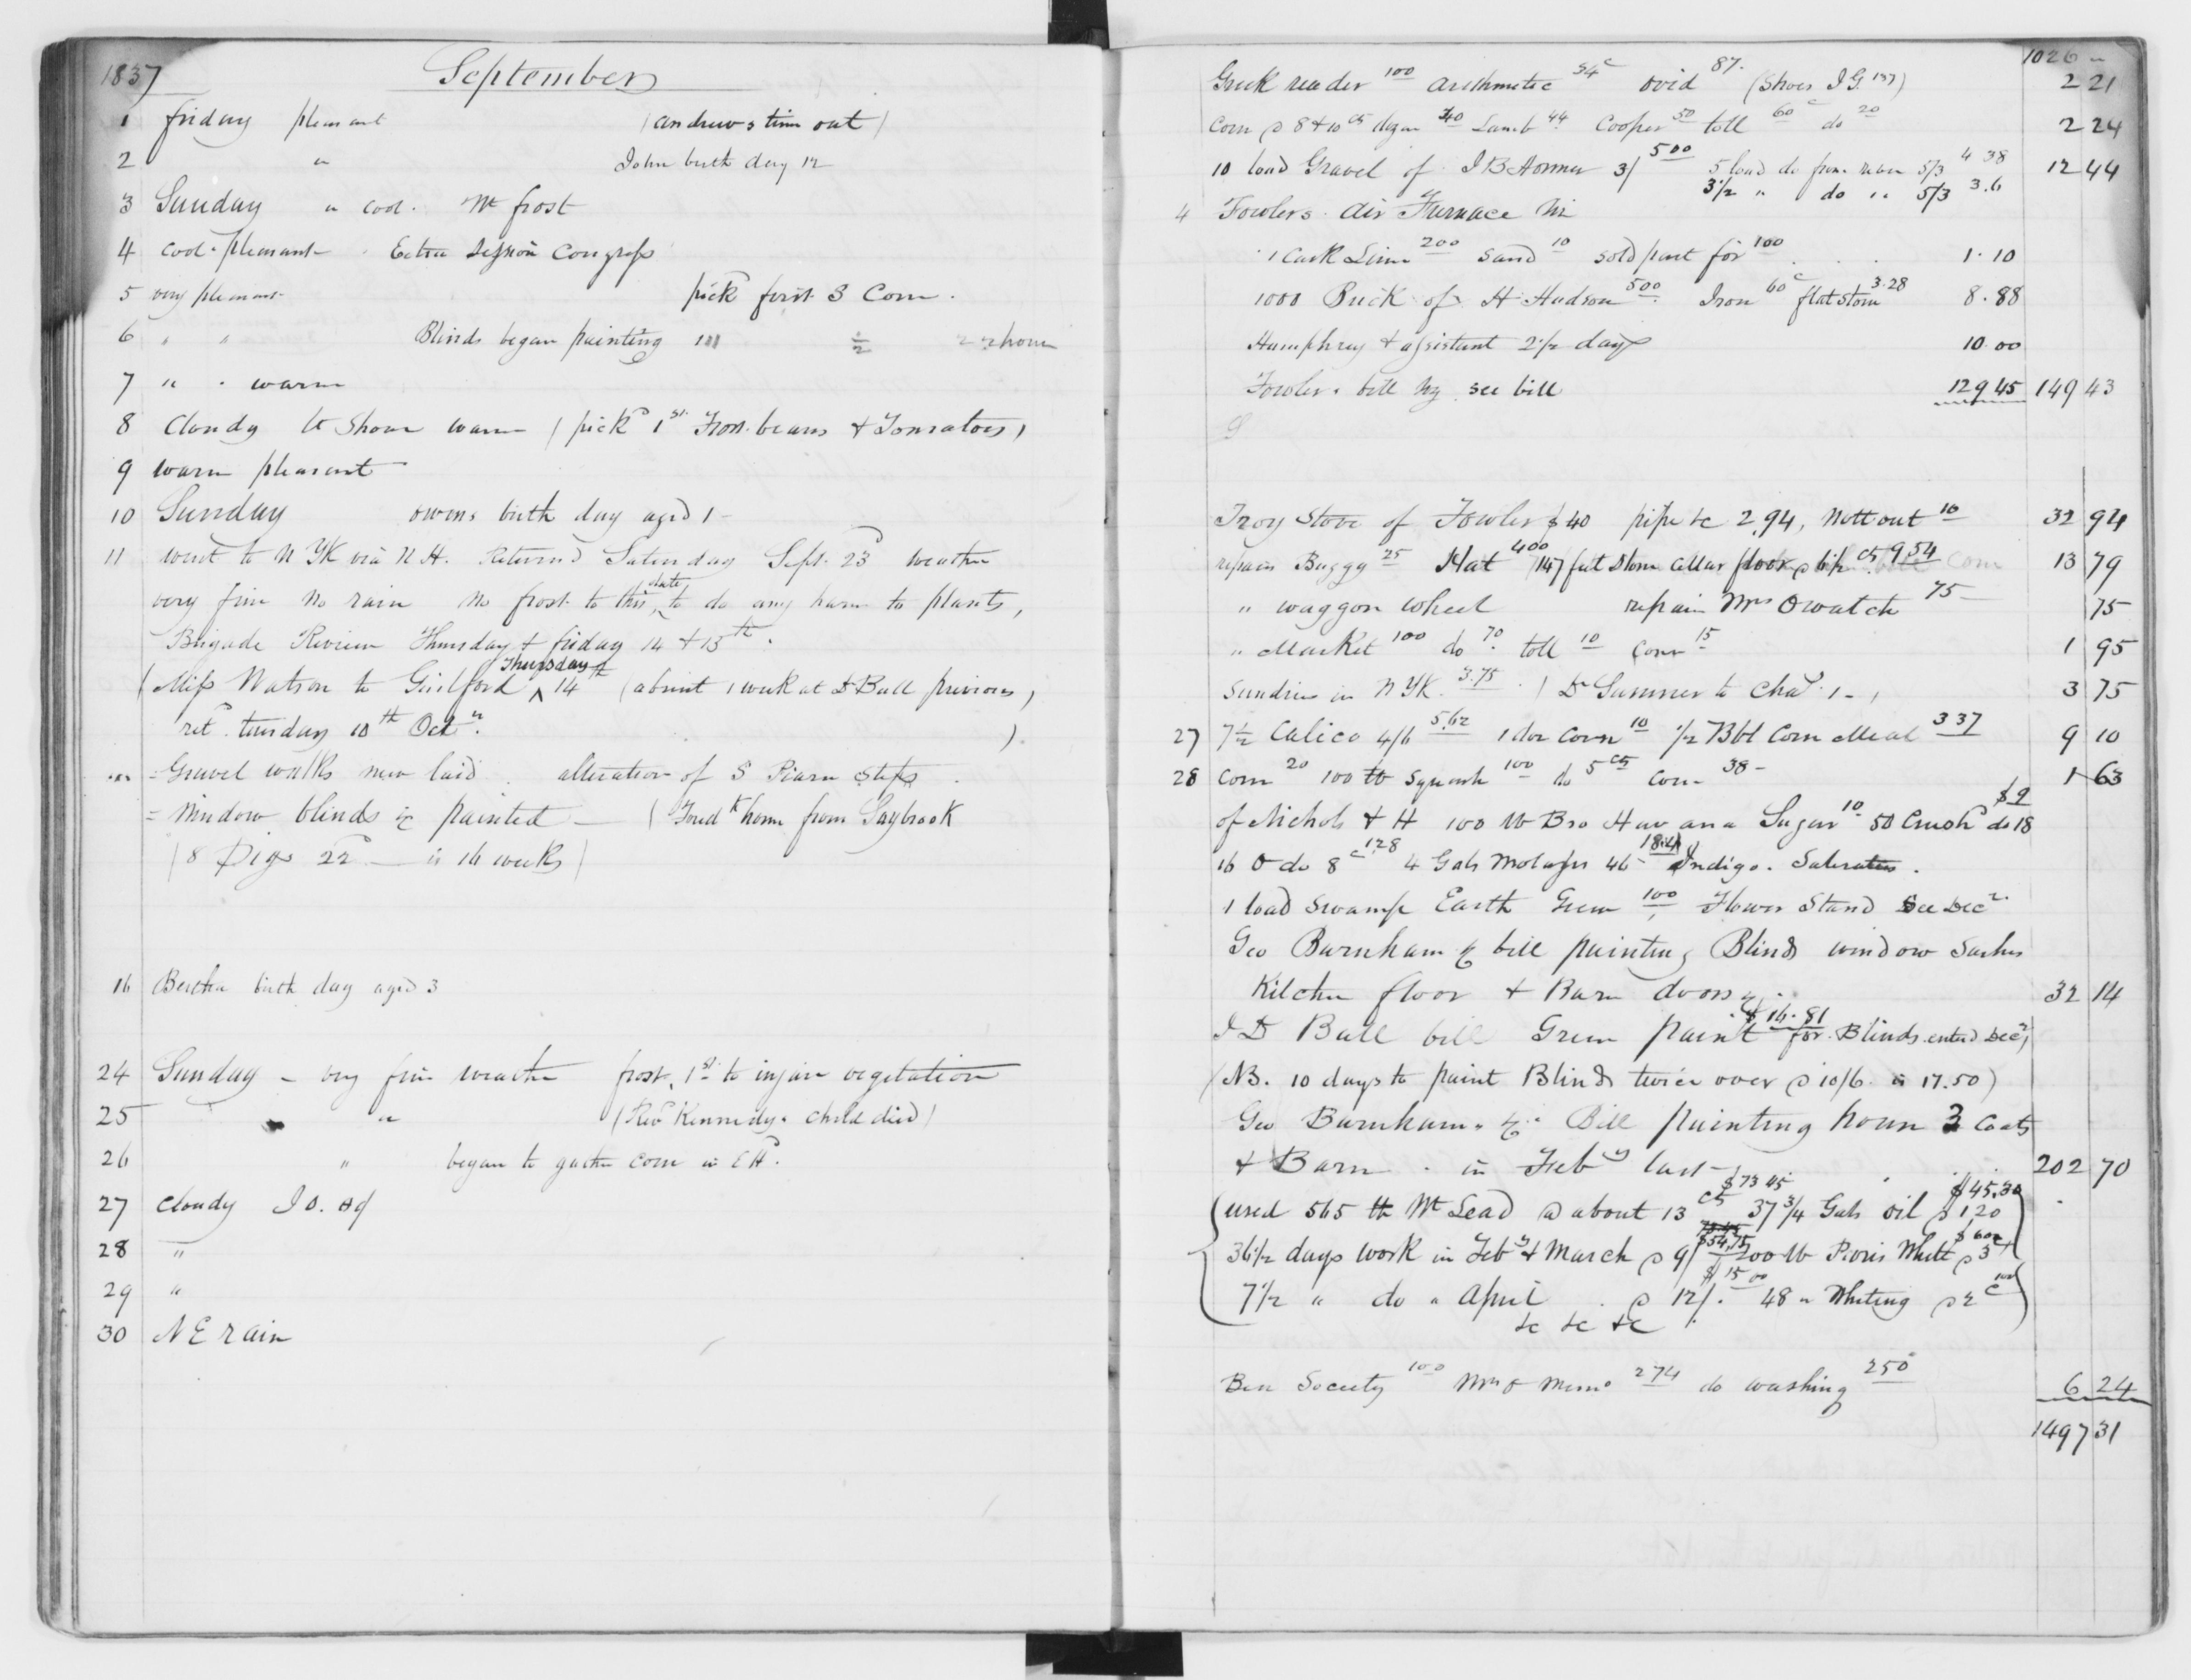 1837 September
1 friday pleasant (andrews time out)
2 " John birth day 12
3 Sunday " cool. Wt frost
4 Cool. pleasant Extra Session Congress
5 very pleasant pickd first S Corn.
6 " " Blinds began painting
7 " " warm
8 Cloudy Lt Shower warm (pickd 1st beans & Tomatoes)
9 warm pleasant
10 Sunday owens birth day aged 1
11 went to N YK via N H. Returnd Saturday Sept. 23d weather
very fine no rain no frost to this date, to do any harm to plants,
Brigade Review Thursday & friday 14 & 15th.
(Miss Watson to Guilford Thursday 14th (absent 1 week at D Bull previous)
retd tuesday 10th Octr.)
= Gravel walks new laid. alteration of S Piazza Steps.
= Window blinds &c painted (Fredk home from Saybrook
(8 Pigs 22d in 16 weeks)
16 Bertha birth day aged 3
24 Sunday very fine weather frost, 1st to injure vegetation
25 " (Revd Kennedys child died)
26 " began to gather corn in EHd.
27 Cloudy
28 "
29 "
30 N E rain
1026 "
Greek reader 100 arithmetic 34c Ovid 87. (Shoes J G 137) 2 21
Corn @ 8 & 10 cts 40 Lamb 44 Cooper 50 toll 60c do 20 2 24
10 load Gravel of J B Hosmer 3/ 500 5 load do from 5/3 4 38 12 44
3 1/2 " do " 5/3 3.6
4 Fowlers Air Furnace viz
1 Cask Lime 200 Sand 10 sold part for 100 1.10
1000 Brick of H Hudson 500 Iron 60c flat stone 3.28 8.88
Humphrey & assistant 2 1/2 days 10.00
Fowlers bill viz see bill 129 45 149 43
Troy Stove of Fowler $40 pipe &c 2.94, 10 32 94
repairs Buggy 25 Hat 400 147 feet Stone cellar floor @ 6 1/2 cts 9.54 13 79
" waggon wheel repair Mrs O watch 75 75
" Market 100 do 70 toll 10 Corn 15 1 95
Sundries in N YK 3.75 (Dr Sumner to Chas 1-) 3 75
27 7 1/2 Calico 4/6 5.62 1 doz Corn 10 1/2 Bbl Corn Meal 337 9 10
28 Corn 20 100 lb Squash 100 do 5 cts Corn 38 1 63
of Nichols & H 100 lb Bro Havana Sugar 10 $9 50 Crushd do 18
16 O do 8c 1.28 4 Gals Molasses 46 1.84 Indigo. Saleratus.
1 load Swamp Earth 100 Flower Stand See Decr
Geo Burnham &c bill painting Blinds window Sashes
Kitchen floor & Barn doors &c 32 14
J D Bull bill Green paint $16.81 for Blinds enterd Decr)
(NB. 10 days to paint Blinds twice over @ 10/6 is 17.50)
Geo Burnham &c Bill painting house 3 Coats
& Barn in Feby last 202 70
(used 565 lb Wt Lead @ about 13 cts $73 45 37 3/4 Gals oil @ 120 $45.30
36 1/2 days work in Feby & March @ 9/ $54,75 200 lb Paris White @ 3c $600
7 1/2 " do " April @ 12/. $15 00 48 " Whiting @ 2c 100
&c &c &c
Ben Society 100 Mrs O Memo 274 do washing 250 6 24
1497 31